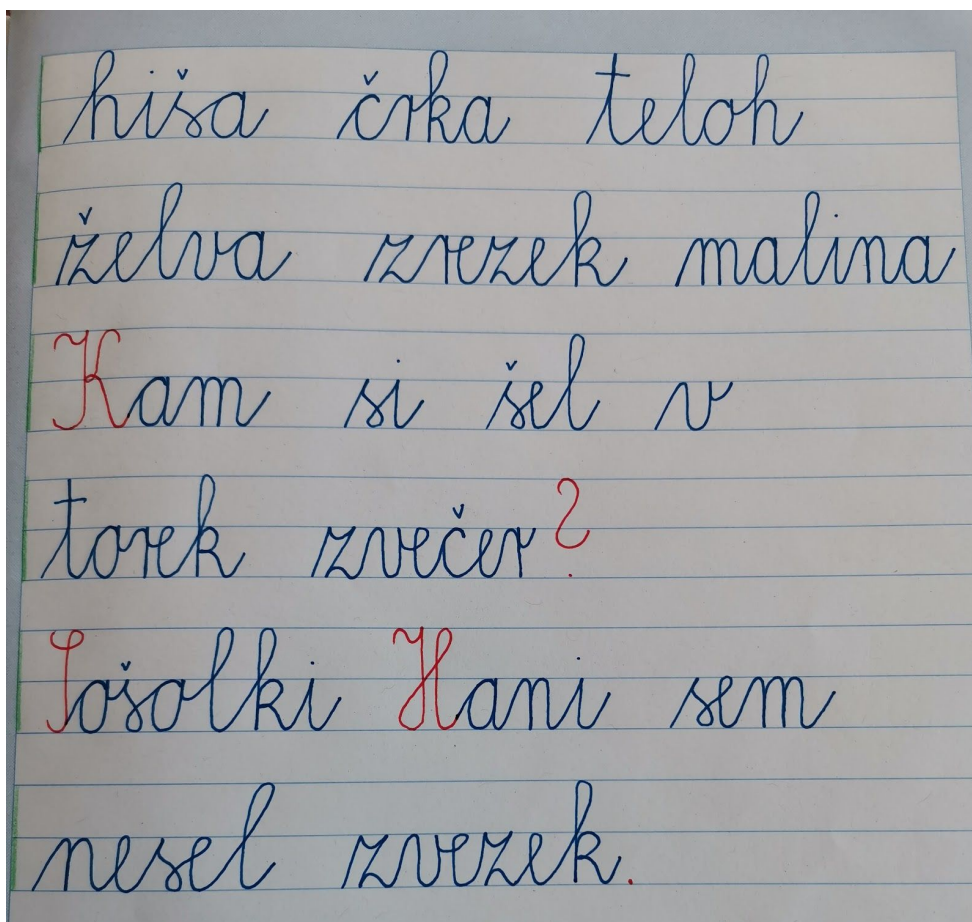 hiša črka teloh
želva zvezek malina
Kam si šel v
torek zvečer?
Sošolki Hani sem
nesel zvezek.